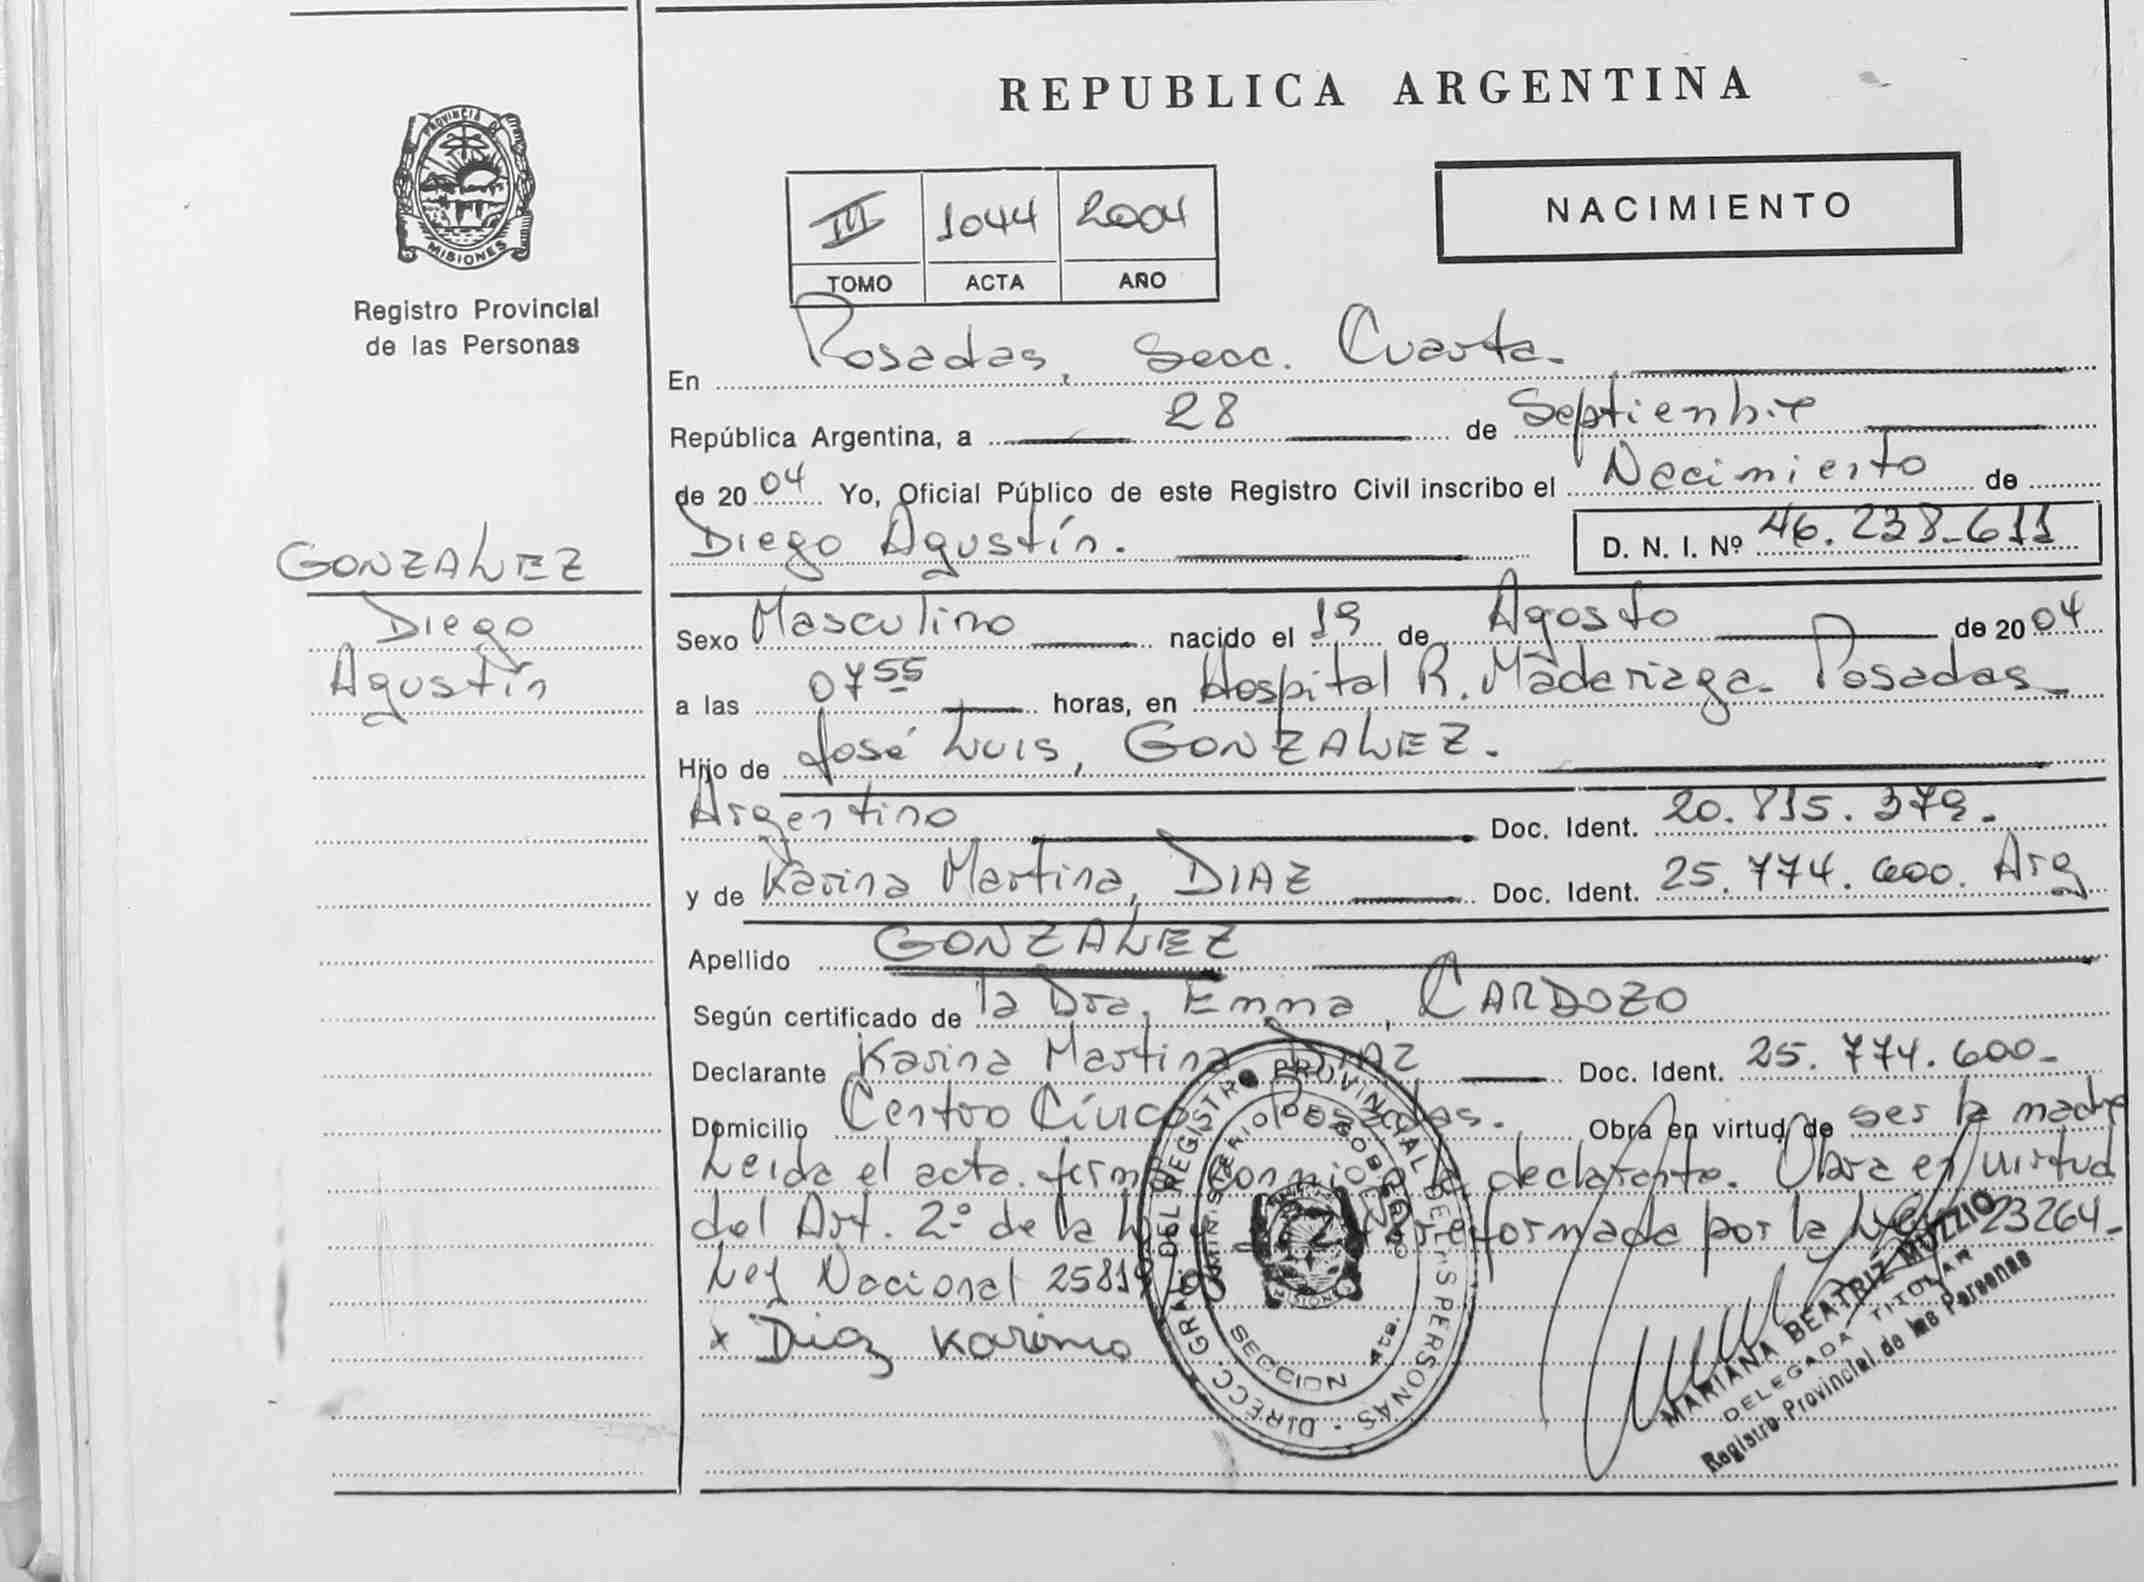 REPUBLICA ARGENTINA
PROVINCIA DE
MISIONES
Registro Provincial
de las Personas
III 1044 2004
TOMO ACTA AÑO
NACIMIENTO
En Posadas, Secc. Cuarta.
República Argentina, a 28 de Septiembre
de 2004 Yo, Oficial Público de este Registro Civil inscribo el Nacimiento de
Diego Agustín. D. N. I. Nº 46.238.611
GONZALEZ
Diego
Agustín
Sexo Masculino nacido el 19 de Agosto de 2004
a las 07 55 horas, en Hospital R. Madariaga. Posadas
Hijo de José Luis, GONZALEZ.
Argentino Doc. Ident. 20.815.379.
y de Karina Martina, DIAZ Doc. Ident. 25.774.600. Arg
Apellido GONZALEZ
Según certificado de la Dra. Emma, CARDOZO
Declarante Karina Martina DIAZ Doc. Ident. 25.774.600-
Domicilio Centro Cívico Posadas. Obra en virtud de ser la madre
Leida el acta. firma conmigo la declarante. Obra en virtud
del Art. 2º de la Ley reformada por la Ley 23264-
Ley Nacional 25819
x Diaz Karina
DIRECC. GRAL. DEL REGISTRO PROVINCIAL DE LAS PERSONAS
MINISTERIO DE GOBIERNO
SECCION 4ta.
MISIONES
MARIANA BEATRIZ MUZZIO
DELEGADA TITULAR
Registro Provincial de las Personas